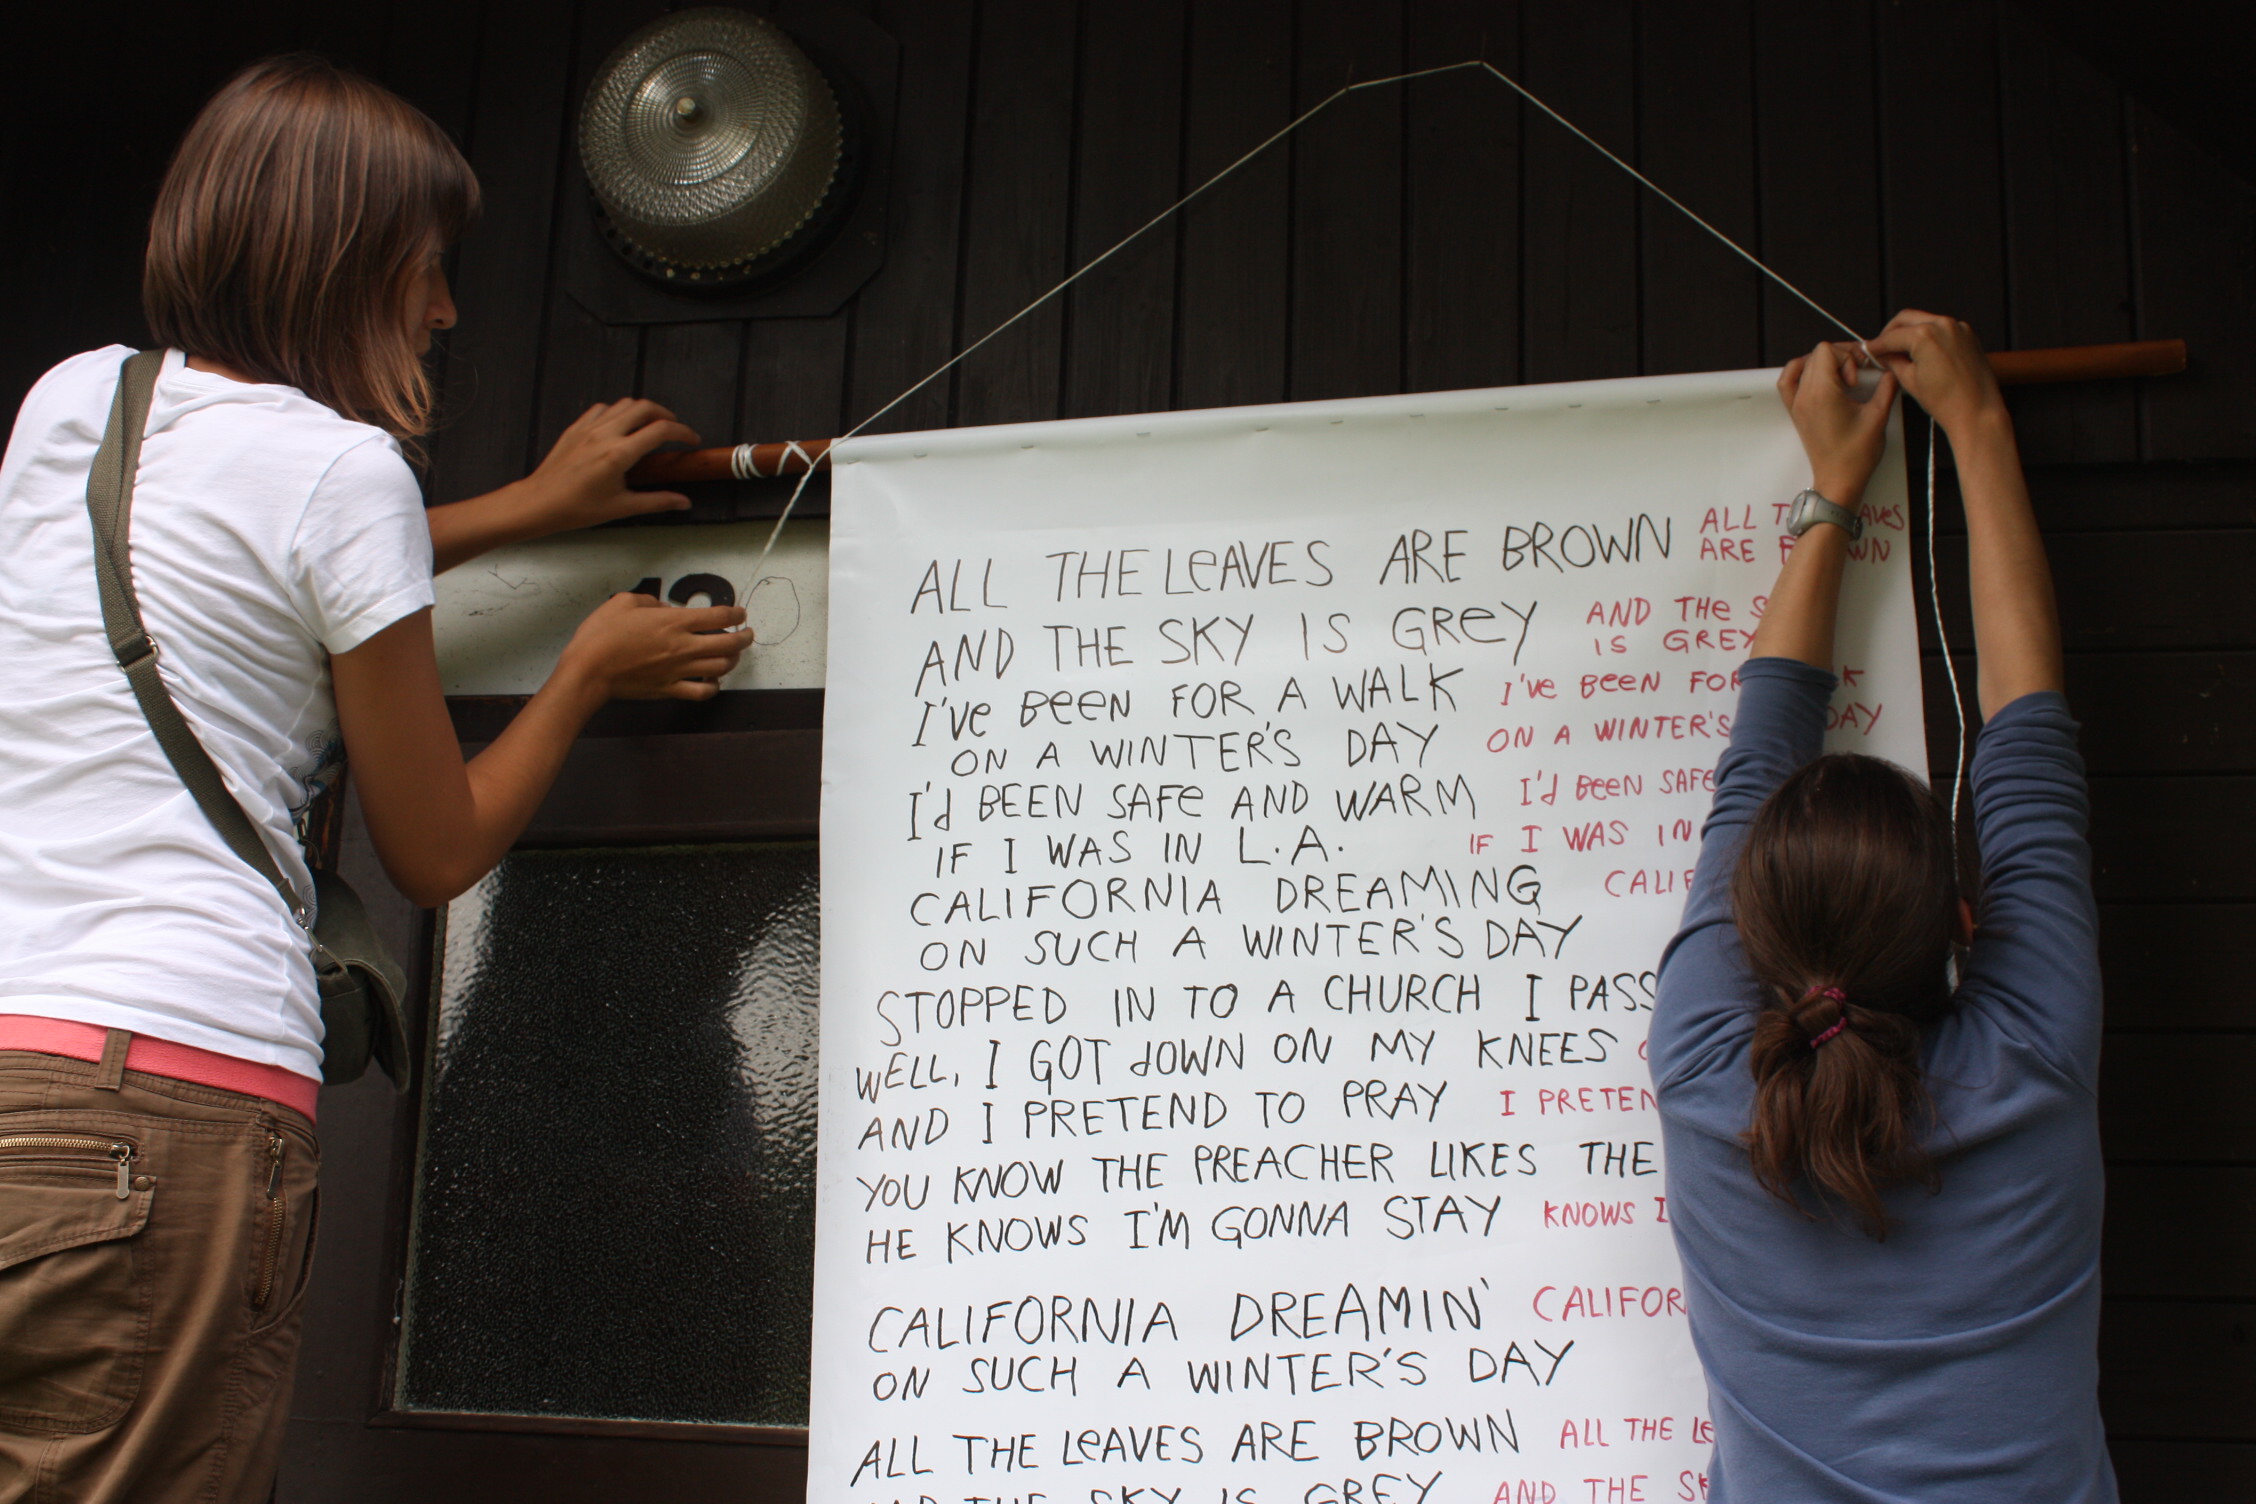 ALL THE LeAVES ARE BROWN ALL
ARE
AND THE SKY IS GReY AND THe
IS GREY
I'Ve BeeN FOR A WALK I'Ve BeeN FOR
ON A WINTER'S DAY ON A WINTER'S DAY
I'd BEEN SAFe AND WARM I'd BeeN SAFe
IF I WAS IN L.A. IF I WAS IN
CALIFORNIA DREAMING
ON SUCH A WINTER'S DAY
STOPPED IN TO A CHURCH I
WELL, I GOT dOWN ON MY KNEES
AND I PRETEND TO PRAY I
YOU KNOW THE PREACHER LIKES THE
HE KNOWS I'M GONNA STAY KNOWS
CALIFORNIA DREAMIN'
ON SUCH A WINTER'S DAY
ALL THE LeAVES ARE BROWN ALL THE
SKY IS GREY AND THE